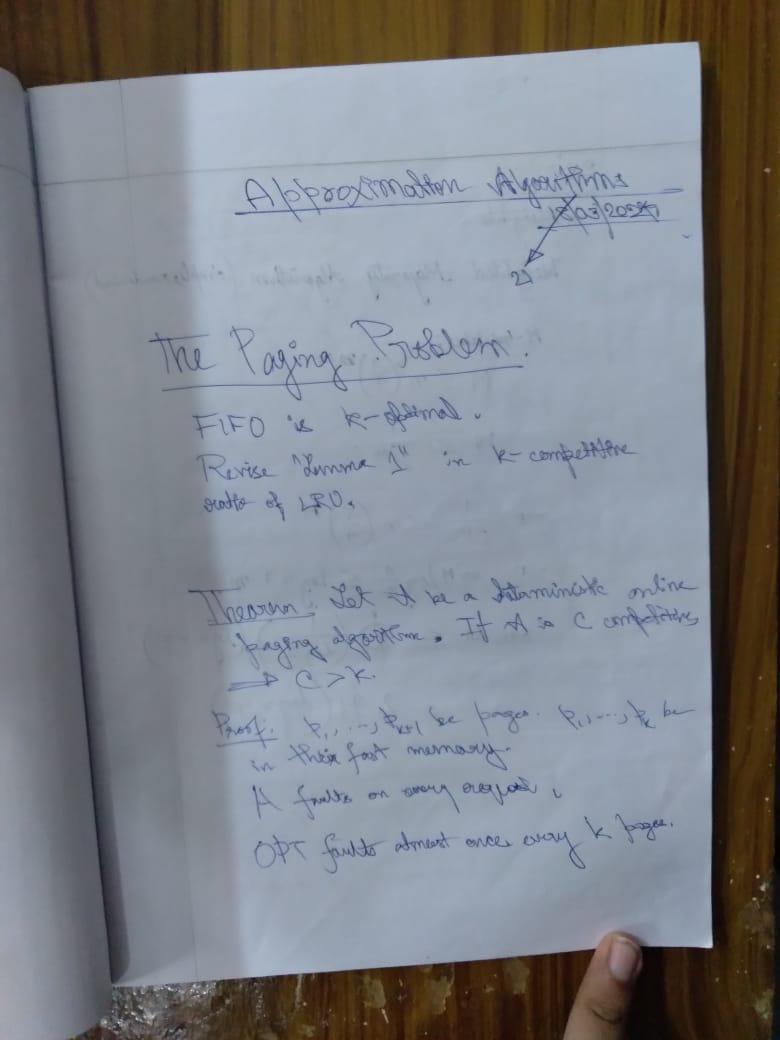 Approximation Algorithms
21
The Paging Problem.
FIFO is k-optimal.
Revise "Lemma 1" in k-competitive
ratio of LRU.
Theorem: Let A be a deterministic online
paging algorithm. If A is C competitive
⇒ C > k.
Proof. p₁, ..., pₖ₊₁ be pages. p₁, ..., pₖ be
in their fast memory.
A faults on every request.
OPT faults atmost once every k pages.